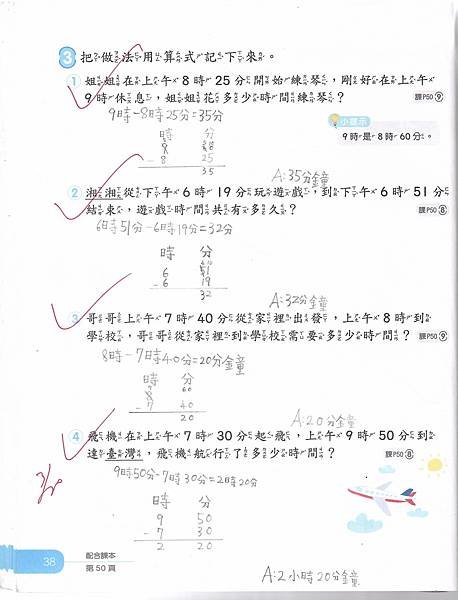 3 把做法用算式記下來。
1 姐姐在上午8時25分開始練琴，剛好在上午
9時休息，姐姐花多少時間練琴？ 課P50 9
9時-8時25分=35分
小提示
9時是8時60分。
時 分
- 8 25
35
A:35分鐘
2 湘湘從下午6時19分玩遊戲，到下午6時51分
結束，遊戲時間共有多久？ 課P50 8
6時51分-6時19分=32分
時 分
6 51
- 6 19
32
A:32分鐘
3 哥哥上午7時40分從家裡出發，上午8時到
學校，哥哥從家裡到學校需要多少時間？ 課P50 9
8時-7時40分=20分鐘
時 分
8 60
- 7 40
20
A:20分鐘
4 飛機在上午7時30分起飛，上午9時50分到
達臺灣，飛機航行了多少時間？ 課P50 8
9時50分-7時30分=2時20分
時 分
9 50
- 7 30
2 20
A:2小時20分鐘
38
配合課本
第50頁